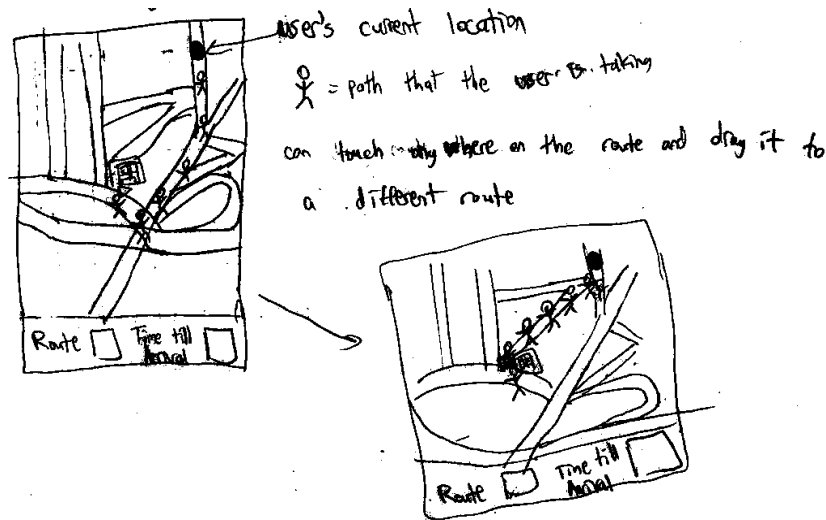 user's current location
= path that the user is taking
can touch any where on the route and drag it to
a different route
Route
Time till
Arrival
Route
Time till
Arrival